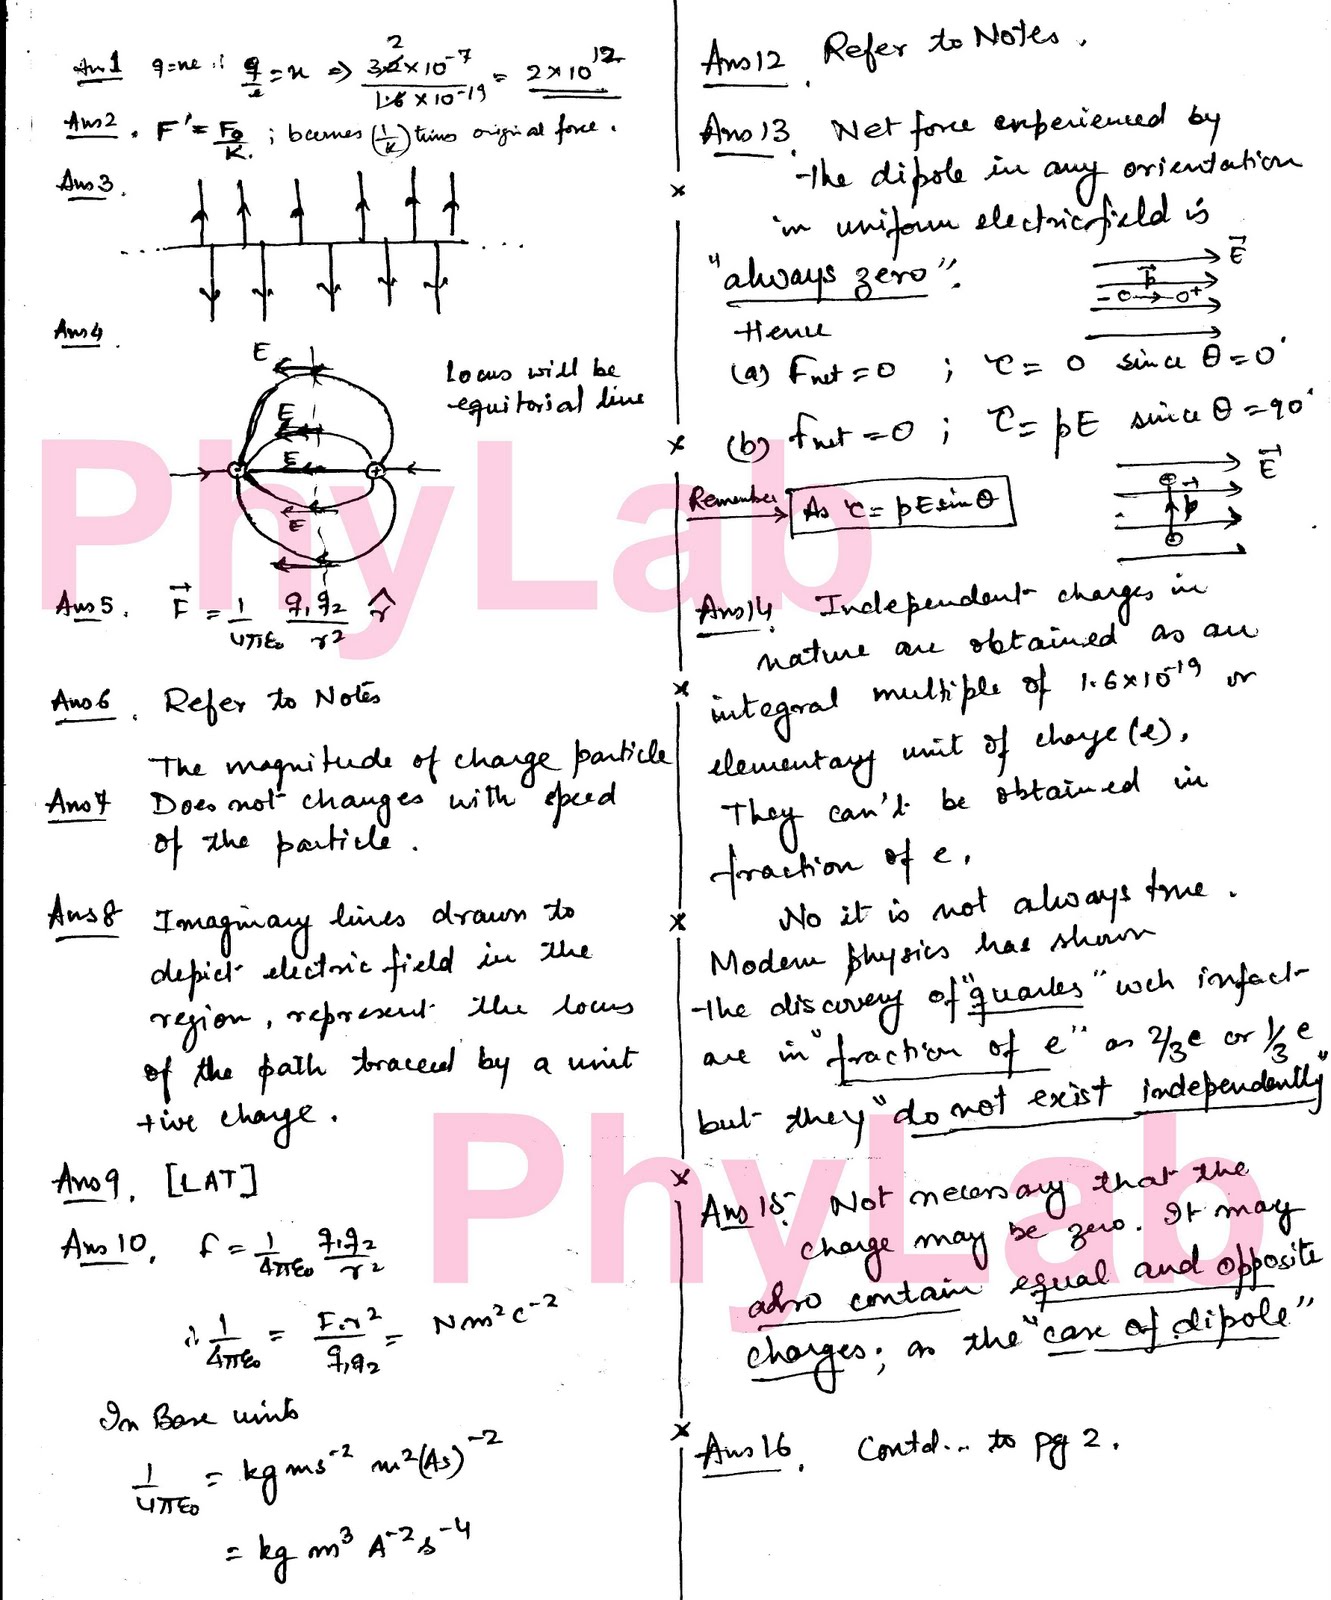 Ans1 q=ne ∴ q/e = n ⇒ 3.2×10⁻⁷ / 1.6×10⁻¹⁹ = 2×10¹²
2
Ans2. F' = F₀/K ; becomes (1/K) times original force.
Ans3.
Ans4.
E
E
E
E
- +
Locus will be
equitorial line
Ans5. F⃗ = 1/4πε₀ q₁q₂/r² r̂
Ans6. Refer to Notes
The magnitude of charge particle
Ans7 Does not changes with speed
of the particle.
Ans8 Imaginary lines drawn to
depict electric field in the
region, represent the locus
of the path traced by a unit
+ive charge.
Ans9. [LAT]
Ans10. F = 1/4πε₀ q₁q₂/r²
∴ 1/4πε₀ = F.r²/q₁q₂ = Nm²C⁻²
In Base units
1/4πε₀ = kg ms⁻² m²(As)⁻²
= kg m³ A⁻² s⁻⁴
Ans12. Refer to Notes.
Ans13. Net force experienced by
the dipole in any orientation
in uniform electric field is
"always zero".
E⃗
p⃗
- +
Hence
(a) Fnet = 0 ; τ = 0 since θ = 0°
(b) Fnet = 0 ; τ = pE since θ = 90°
E⃗
p⃗
Remember As τ = pE sin θ
Ans14. Independent charges in
nature are obtained as an
integral multiple of 1.6×10⁻¹⁹ or
elementary unit of charge (e).
They can't be obtained in
fraction of e.
No it is not always true.
Modern physics has shown
the discovery of "quarks" wch infact
are in "fraction of e" as 2/3e or 1/3e
but they "do not exist independently"
Ans15. Not necessary that the
charge may be zero. It may
also contain equal and opposite
charges; as the "case of dipole"
Ans16. Contd... to pg 2.
PhyLab
PhyLab